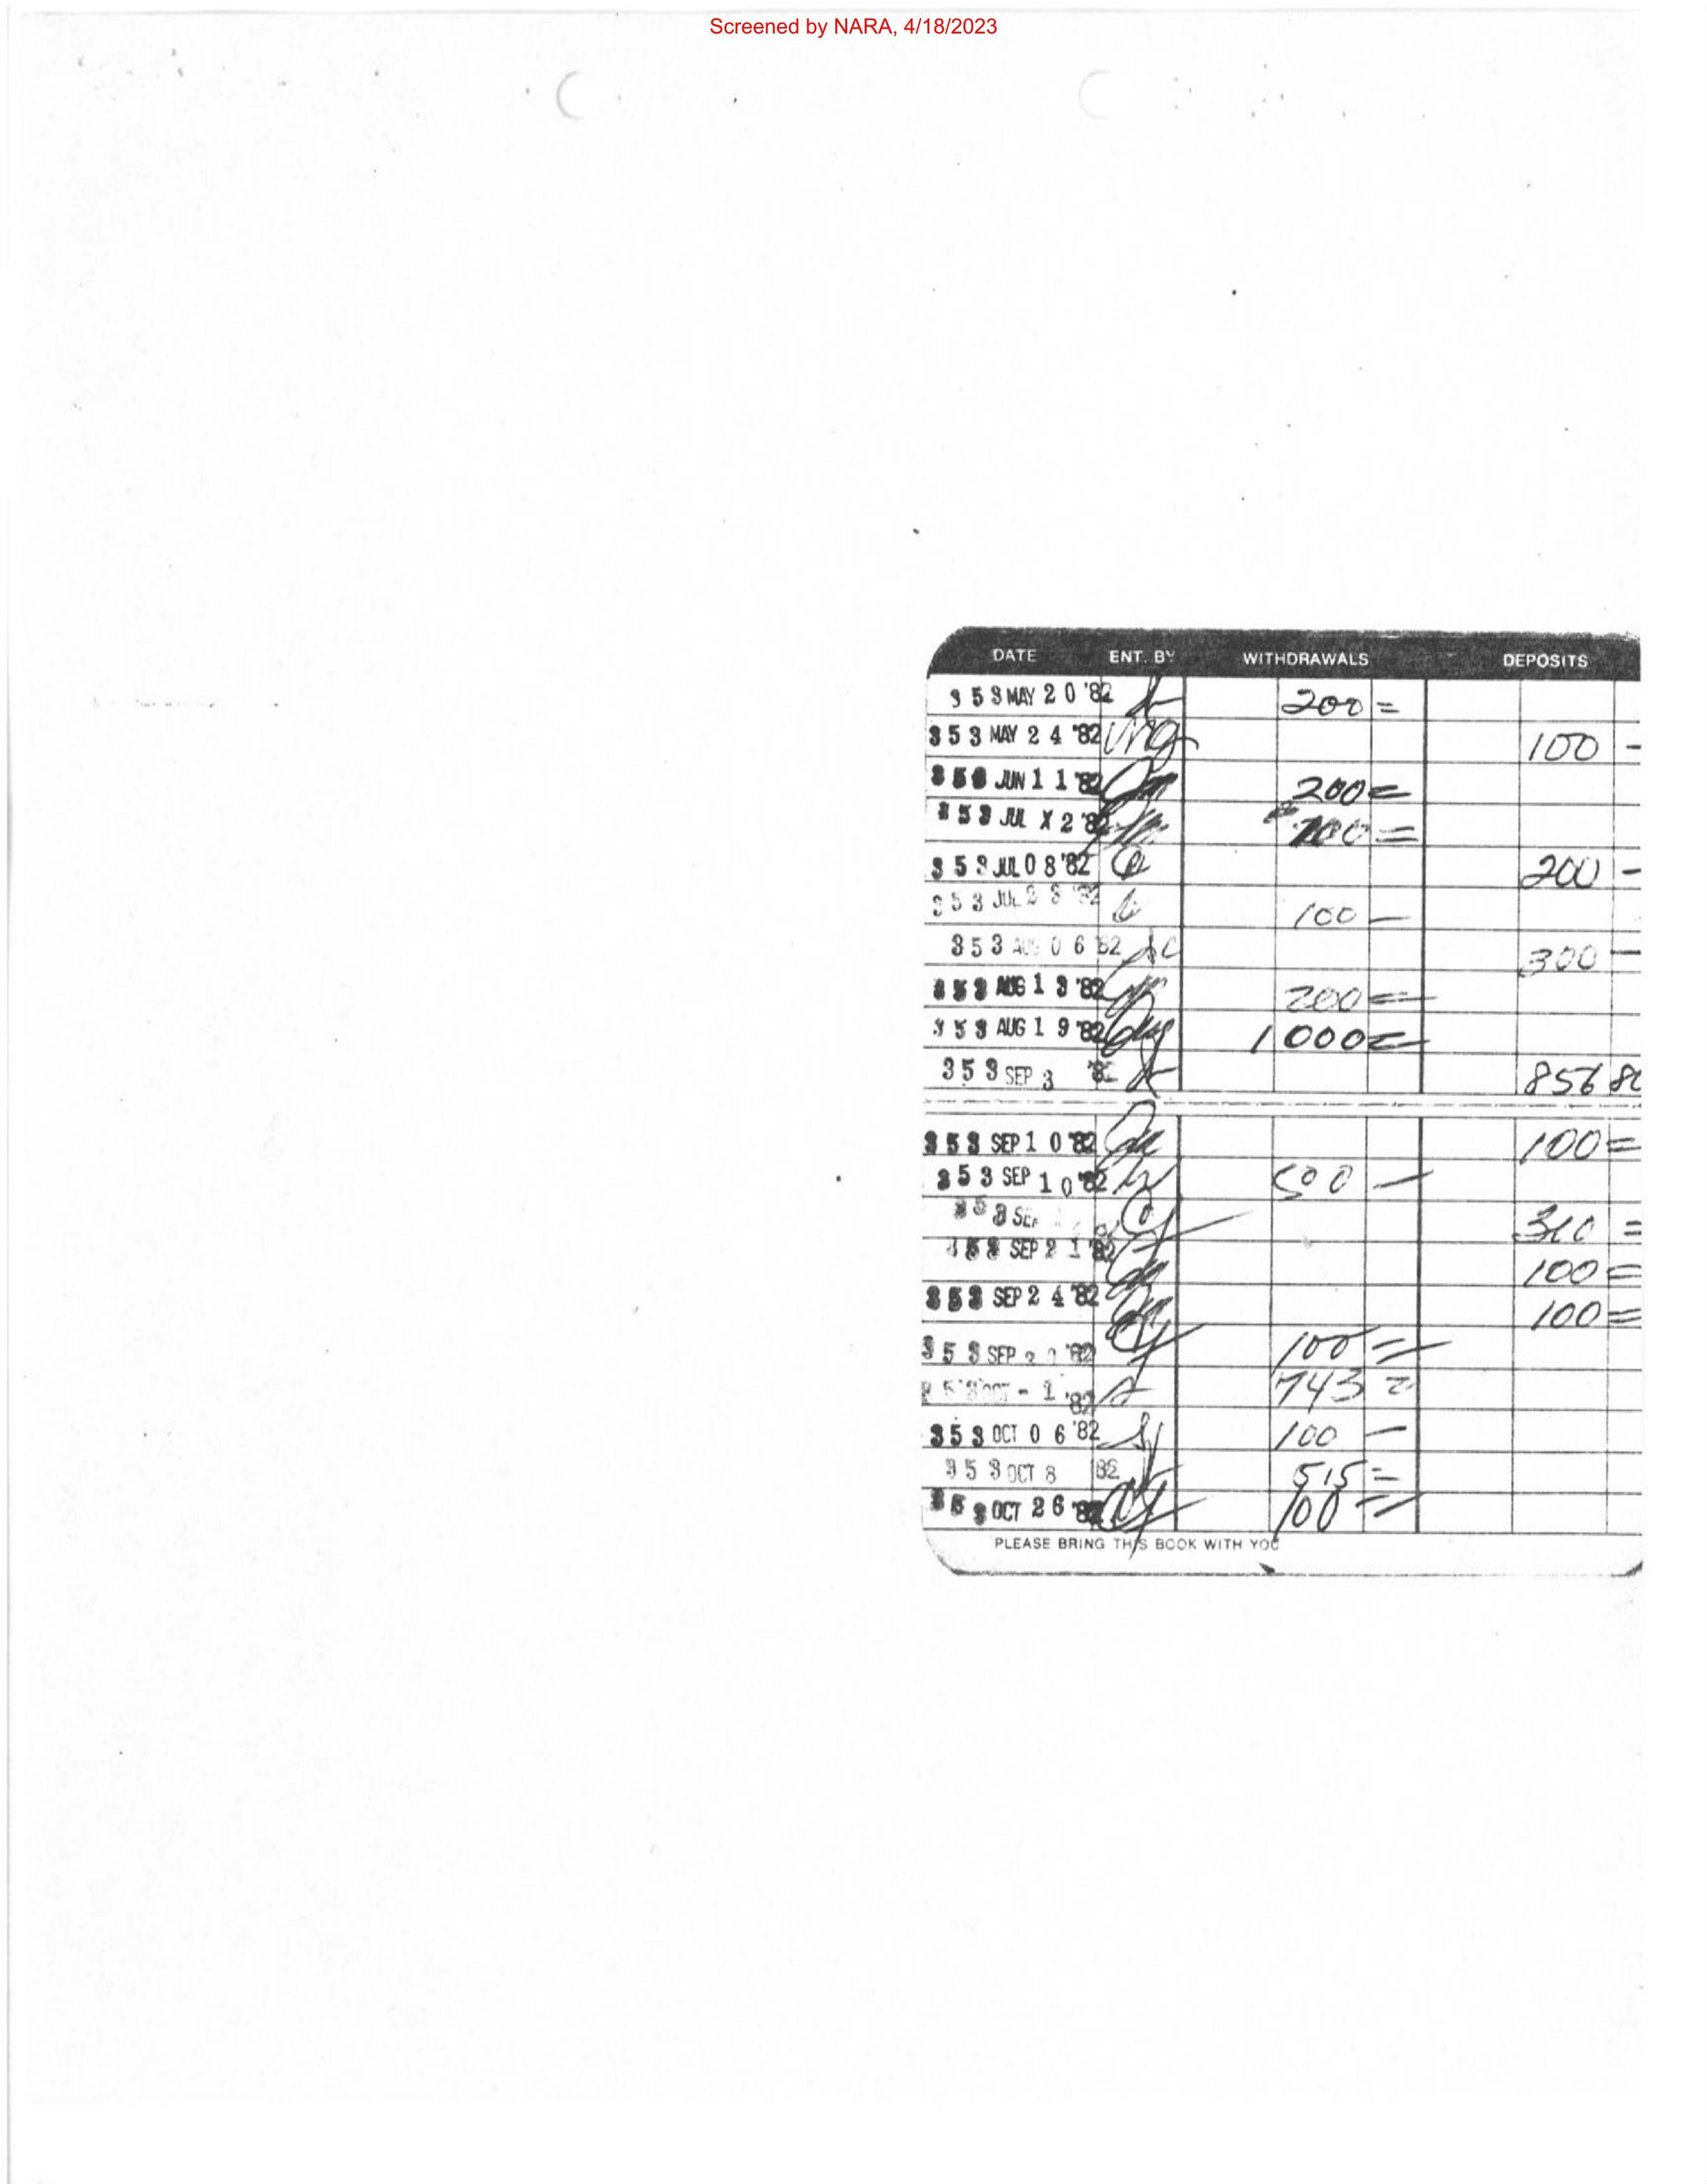 Screened by NARA, 4/18/2023
DATE ENT. BY WITHDRAWALS DEPOSITS
353 MAY 20 '82 200 =
353 MAY 24 '82 100 -
353 JUN 11 '82 200 =
353 JUL X 2 '82 =
353 JUL 08 '82 200 -
353 JUL 28 '82 100 -
353 AUG 06 '82 300 -
353 AUG 13 '82 200 =
353 AUG 19 '82 1000 =
353 SEP 3 '82 856
353 SEP 10 '82 100 =
353 SEP 10 '82 500 -
353 SEP =
353 SEP 21 '82 100 =
353 SEP 24 '82 100 =
353 SEP '82 100 =
353 OCT - 1 '82 743 =
353 OCT 06 '82 100 -
353 OCT 8 82 515 =
353 OCT 26 '82 100 =
PLEASE BRING THIS BOOK WITH YOU